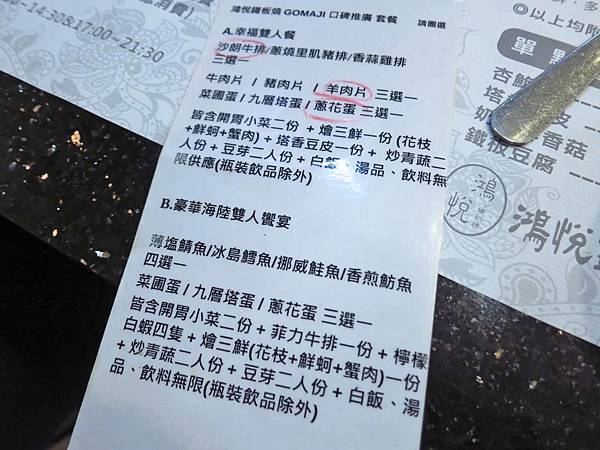 -14:30&17:00~21:30
鴻悅鐵板燒 GOMAJI 口碑推廣 套餐 請圈選
A.幸福雙人餐
沙朗牛排/蔥燒里肌豬排/香蒜雞排
三選一
牛肉片 / 豬肉片 / 羊肉片 三選一
菜圃蛋/九層塔蛋/蔥花蛋 三選一
皆含開胃小菜二份 + 燴三鮮一份 (花枝
+鮮蚵+蟹肉) + 塔香豆皮一份 + 炒青蔬二
人份 + 豆芽二人份 + 白飯、湯品、飲料無
限供應(瓶裝飲品除外)
B.豪華海陸雙人饗宴
薄塩鯖魚/冰島鱈魚/挪威鮭魚/香煎魴魚
四選一
菜圃蛋/九層塔蛋 / 蔥花蛋 三選一
皆含開胃小菜二份 + 菲力牛排一份 + 檸檬
白蝦四隻 + 燴三鮮(花枝+鮮蚵+蟹肉)一份
+ 炒青蔬二人份 + 豆芽二人份 + 白飯、湯
品、飲料無限(瓶裝飲品除外)
◎以上均附
單點
鐵板豆腐
鴻悅
鴻悅